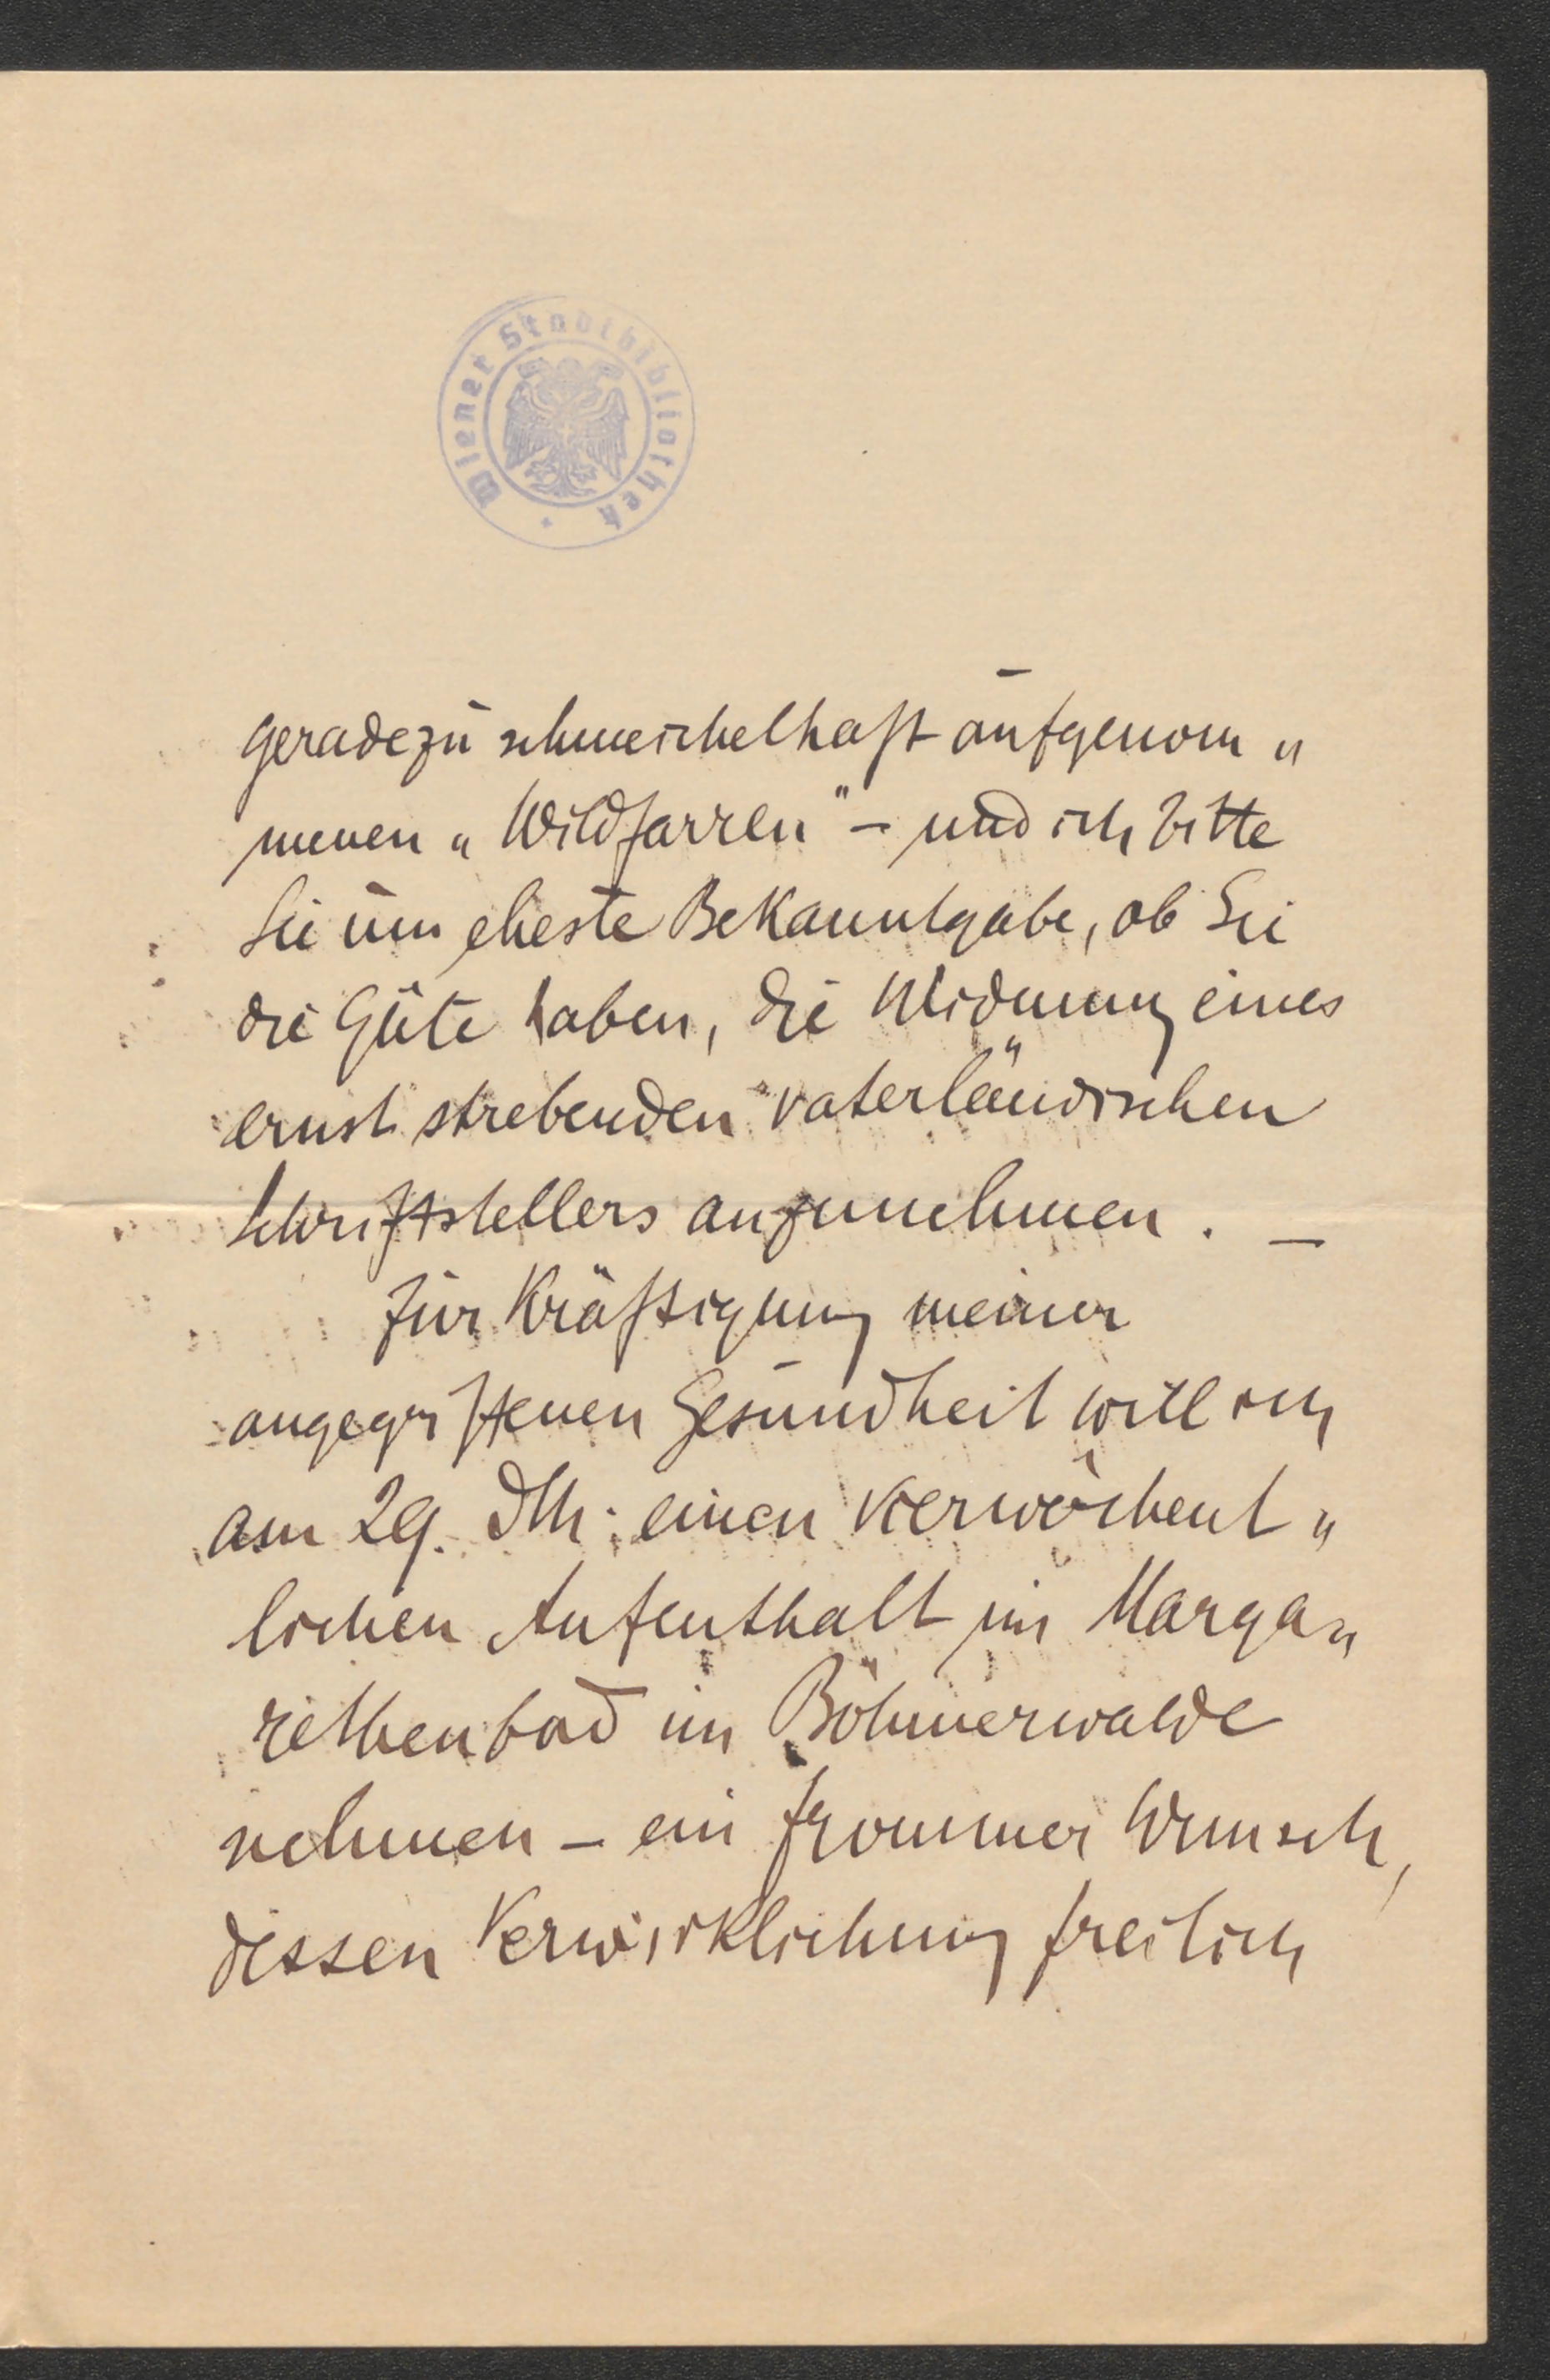 Wiener Stadtbibliothek
geradezu schmeichelhaft aufgenom„
menen „Wildfarren" – und ich bitte
Sie um eheste Bekanntgabe, ob Sie
die Güte haben, die Widmung eines
ernst strebenden vaterländischen
Schriftstellers anzunehmen. –
Zur Kräftigung meiner
angegriffenen Gesundheit will ich
am 29. dM. einen vierwöchent„
lichen Aufenthalt im Marga„
rethenbad im Böhmerwalde
nehmen – ein frommer Wunsch,
dessen Verwirklichung freilich